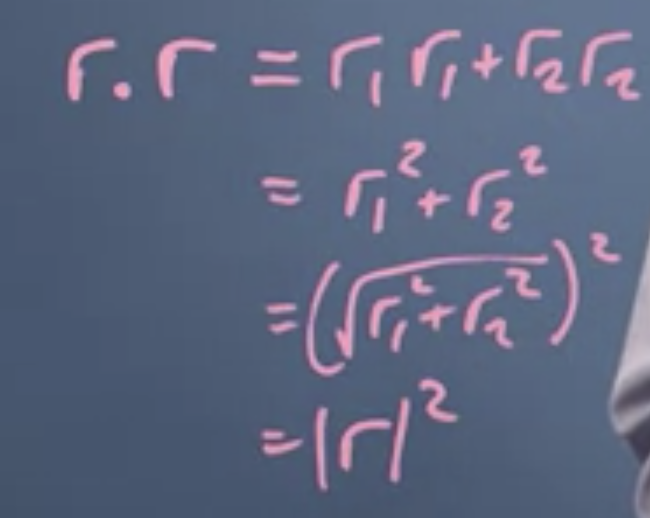 r.r = r₁r₁+r₂r₂
= r₁²+r₂²
=(√(r₁²+r₂²))²
=|r|²